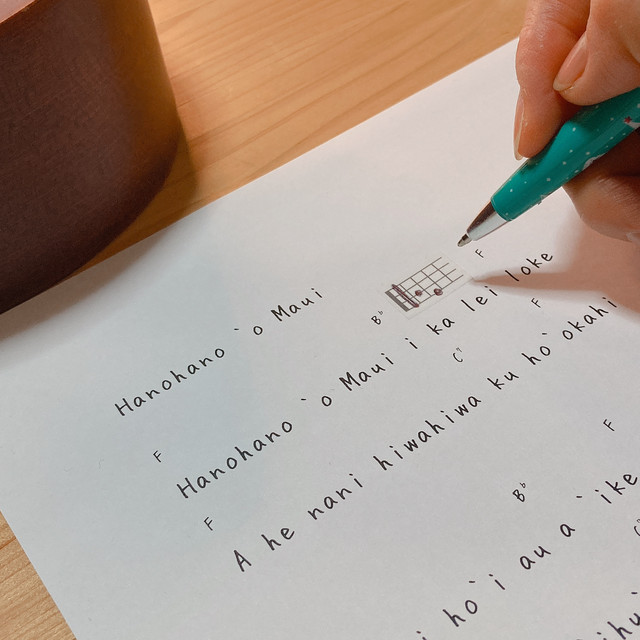 Hanohano `o Maui
F B♭ F
Hanohano `o Maui i ka lei loke
F C7 F
A he nani hiwahiwa ku ho`okahi
B♭ F
ho`i au a `ike